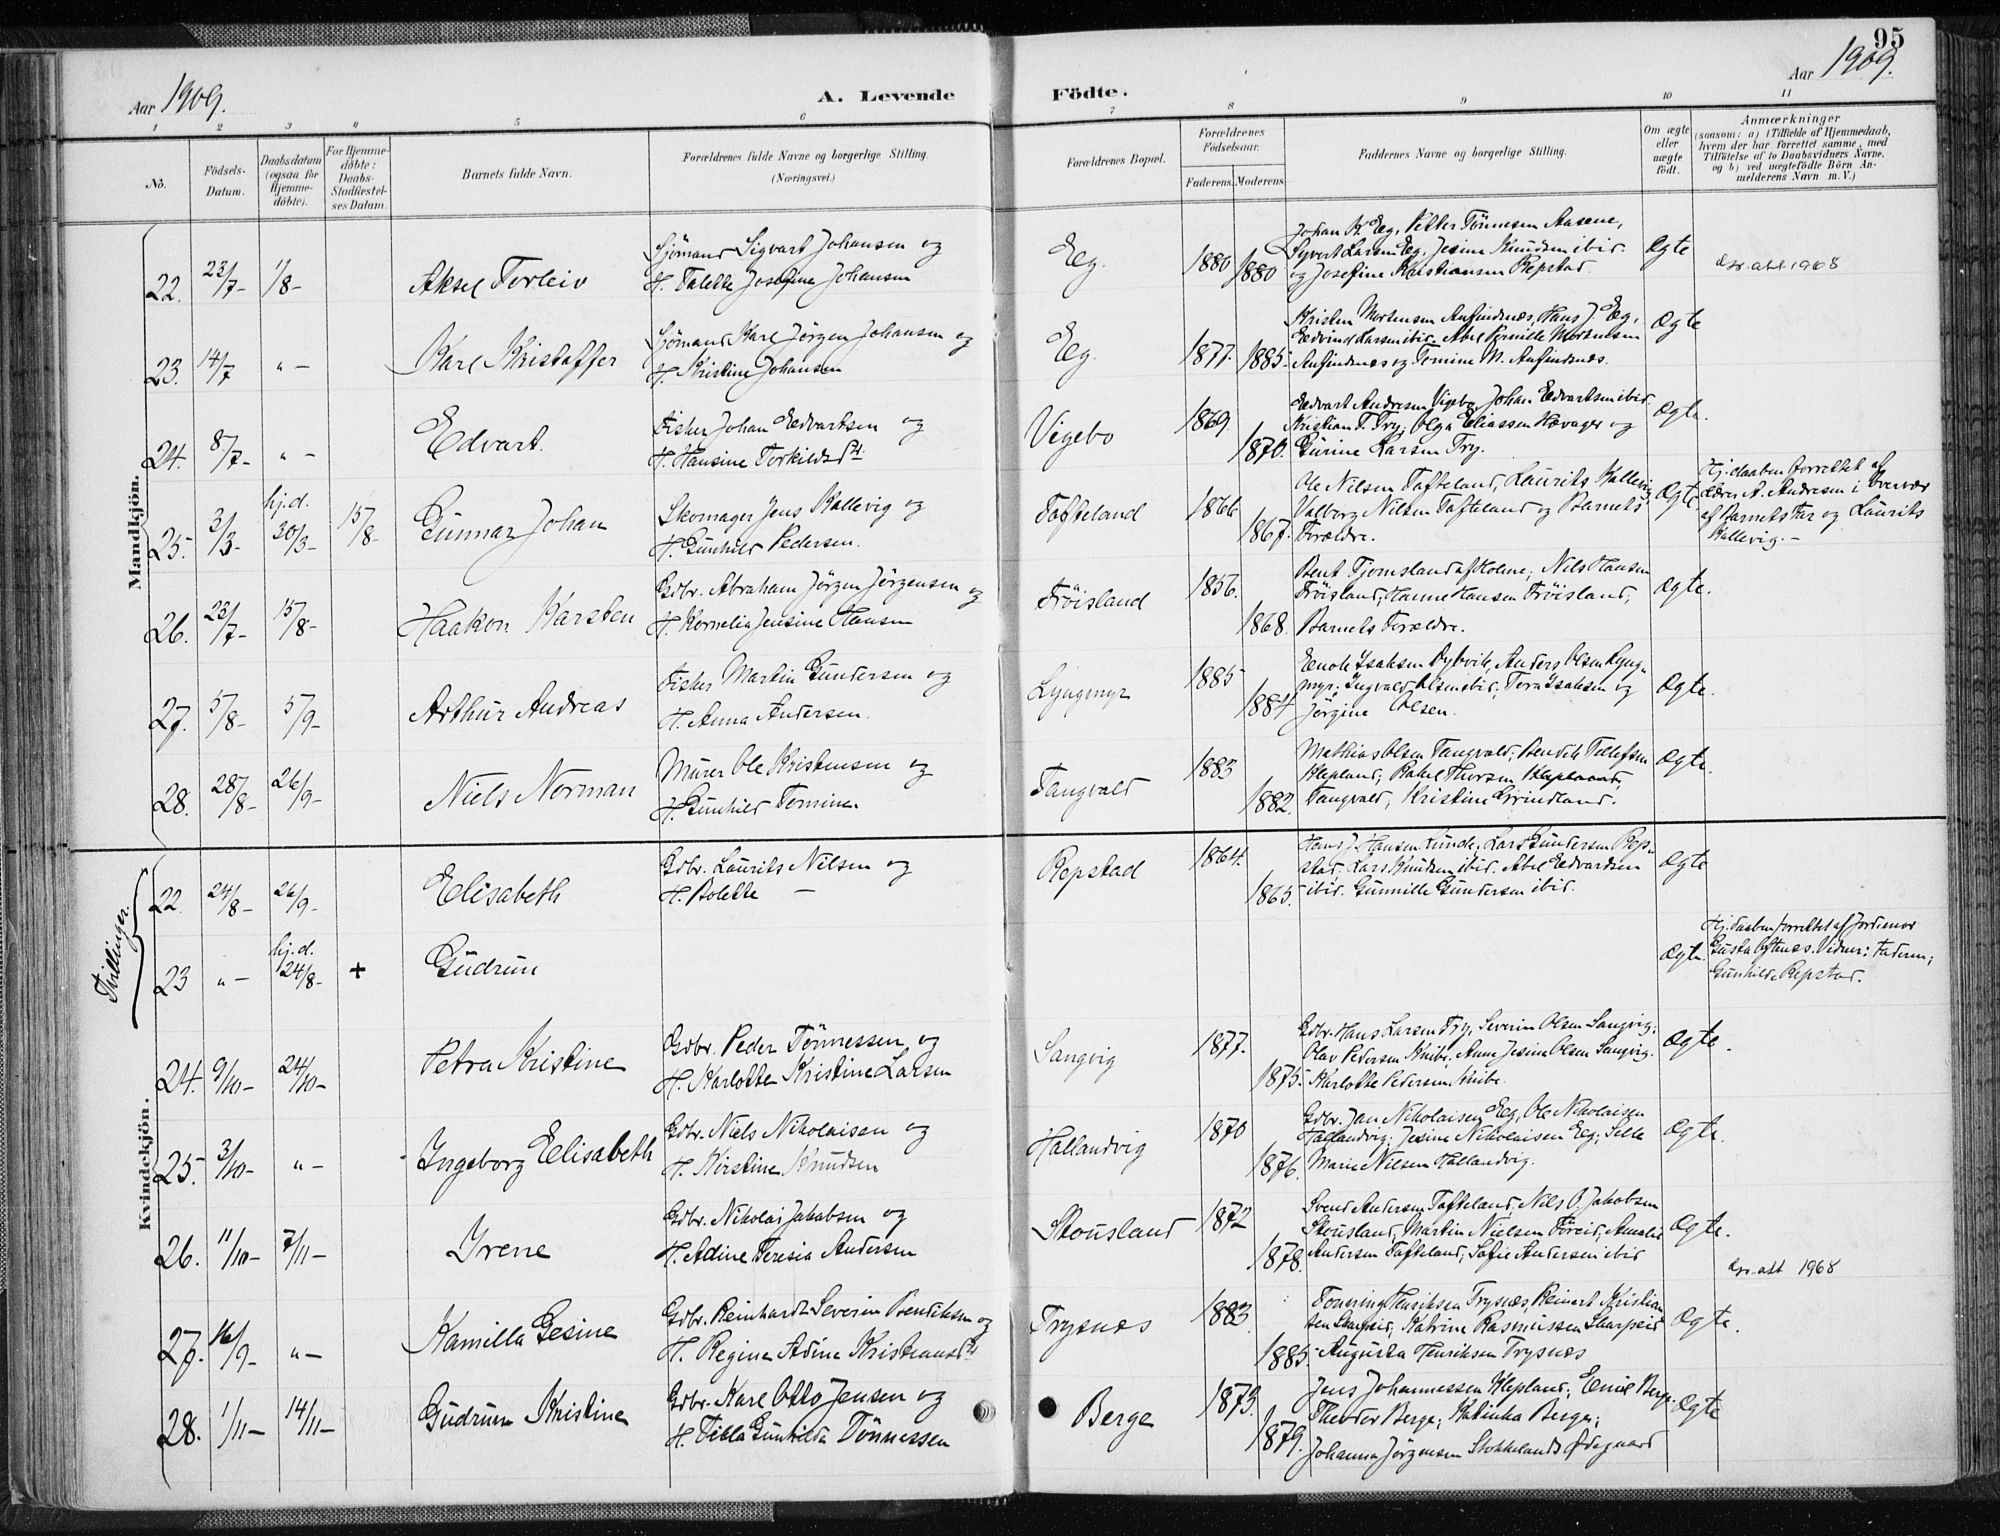 95
Aar 1909.
A. Levende Födte.
Aar 1909.
1 2 3 4 5 6 7 8 9 10 11
No.
Födsels-Datum.
Daabsdatum (ogsaa for Hjemme-döbte).
For Hjemme-döbte: Daabs-Stadfæstel-ses Datum.
Barnets fulde Navn.
Forældrenes fulde Navne og borgerlige Stilling. (Næringsvei.)
Forældrenes Bopæl.
Forældrenes Födselsaar.
Faderens. Moderens.
Faddernes Navne og borgerlige Stilling.
Om ægte eller uægte födt.
Anmærkninger
(saasom: a) i Tilfælde af Hjemmedaab, hvem der har forrettet samme, med Tilföielse af to Daabsvidners Navne. og b) ved uægtefödte Börn Anmelderens Navn m. V.)
Mandkjön.
22. 23/7- 1/8- Aksel Torleiv
Sjömand Sigvart Johansen og
H. Talette Josefine Johansen
Eg. 1880 1880
Johan K. Eg, Petter Tönnesen Aasene,
Syvert Larsen Eg, Jesine Knudsen ibid.
og Josefine Kristiansen Repstad.
Ægte
1968
23. 14/7 " - Karl Kristoffer
Sjömand Karl Jörgen Johansen og
H. Kristine Johansen
Eg. 1877. 1885-
Kristen Mortensen Aufindsnæs, Hans J. Eg,
Edvind Larsen ibid, Abel Pernille Mortensen
Aufindsnæs og Tomine M. Aufindsnæs.
Ægte
24. 8/7- " - Edvart.
Fisker Johan Edvartsen og
H. Hansine Torkildsdtr
Vigebo 1869. 1870.
Edvart Andresen Vigebo, Johan Edvartsen ibid.
Kristian T. Try, Olga Eliassen Kævager og
Gurine Larsen Try.
Ægte.
25. 3/3- hj.d. 30/3- 15/8- Gunnar Johan
Skomager Jens Kallevig og
H. Gunhild Pedersen.
Tofteland 1866 1867.
Ole Nilsen Tofteland, Laurits Kallevig
Valborg Nilsen Tofteland og Barnets
Forældre.
Ægte
Hj. daaben forrettet af
Lærer A. Andresen i Overvær
af Barnets Far og Laurits
Kallevig.-
26. 23/7- 15/8- Haakon Karsten
Gdbr. Abraham Jörgen Jörgensen og
H. Kornelia Jensine Hansen
Fröisland 1856. 1868.
Bent Fjomsland af Holme, Nils Hansen
Fröisland; Hanne Hansen Fröisland,
Barnets Forældre.
Ægte.
27. 5/8- 5/9- Arthur Andreas
Fisker Martin Gundersen og
H. Anna Andersen.
Lyngmyr 1885 1884
Enok Isaksen Dybvik, Anders Olsen Lyng-
myr; Ingvald Olsen ibid; Tora Isaksen og
Jörgine Olsen.
Ægte.
28. 28/8- 26/9- Niels Norman
Murer Ole Kristensen og
H. Gunhild Tomine
Tangvald 1883 1882.
Mathias Olsen Tangvald; Bendik Tellefsen
Klepland, Rakel Thorsen Klepland,
Tangvald, Kristine Grindland.
Ægte.
Kvindekjön.
Tvillinger.
22. 24/8- 26/9- Elisabeth
Gdbr. Laurits Nilsen og
H. Bolette -
Repstad 1864. 1865.
Hans J. Hansen Lunde, Lars Gundersen Rep-
stad, Lars Knudsen ibid. Abel Edvardsen
ibid. Gunnille Gundersen ibid.
Ægte
23 " - hj.d. 24/8- + Gudrun
Ægte.
Hj. daaben forrettet af Jordemor
Gusta Oftenæs. Vidner: Faderen;
Gunhilde Repstad.
24. 9/10- 24/10- Petra Kristine
Gdbr. Peder Tönnessen og
H. Karlotte Kristine Larsen
Langvig 1877. 1875.
Gdbr. Hans Larsen Try, Severin Olsen Langvig.
Olav Pedersen Knibe, Anne Jesine Olsen Langvig.
Karlotte Pedersen Knibe.
Ægte.
25. 3/10- " - Ingeborg Elisabeth
Gdbr. Niels Nikolaisen og
H. Kirstine Knudsen
Hallandvig 1870 1876.
Gdbr. Jan Nikolaisen Eg, Ole Nikolaisen
Hallandvig; Jesine Nikolaisen Eg; Selle
Marie Nilsen Hallandvig.
Ægte.
26. 11/10- 7/11- Irene
Gdbr. Nikolai Jakobsen og
H. Adine Teresia Andersen
Stousland 1872 1878.
Svend Andersen Tofteland, Nils O. Jakobsen
Stousland, Martin Nielsen Töreid, Amalie
Andersen Tofteland, Sofie Andersen ibid
Ægte.
1968
27. 16/9- " - Kamilla Gesine
Gdbr. Reinhardt Severin Bendiksen og
H. Regine Adine Kristiansdtr
Trysnes 1883. 1885.
Tönning Henriksen Trysnæs, Reinert Kristian
sen Skarpeid, Katrine Rasmussen Skarpeid
Augusta Henriksen Trysnæs
Ægte.
28. 1/11- 14/11- Gudrun Kristine
Gdbr. Karl Otto Jensen og
H. Tilla Gunhilda Tönnessen
Berge 1873. 1879.
Jens Johannessen Klepland; Emil Berge.
Theodor Berge; Katinka Berge;
Johanna Jörgensen Stokkelands Ödegaard
Ægte